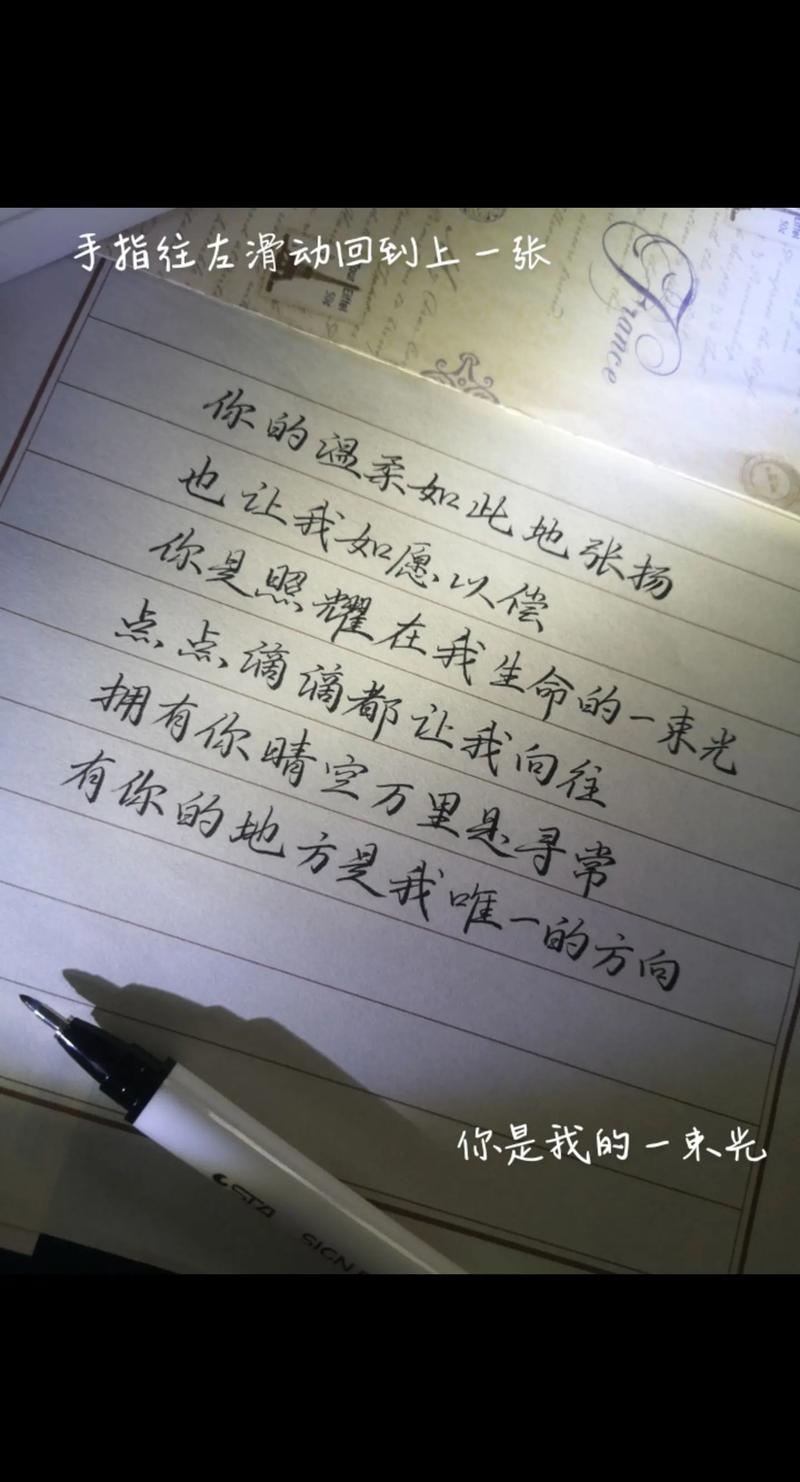 手指往左滑动回到上一张
France
你的温柔如此地张扬
也让我如愿以偿
你是照耀在我生命的一束光
点点滴滴都让我向往
拥有你晴空万里是寻常
有你的地方是我唯一的方向
你是我的一束光
STA
SIGN